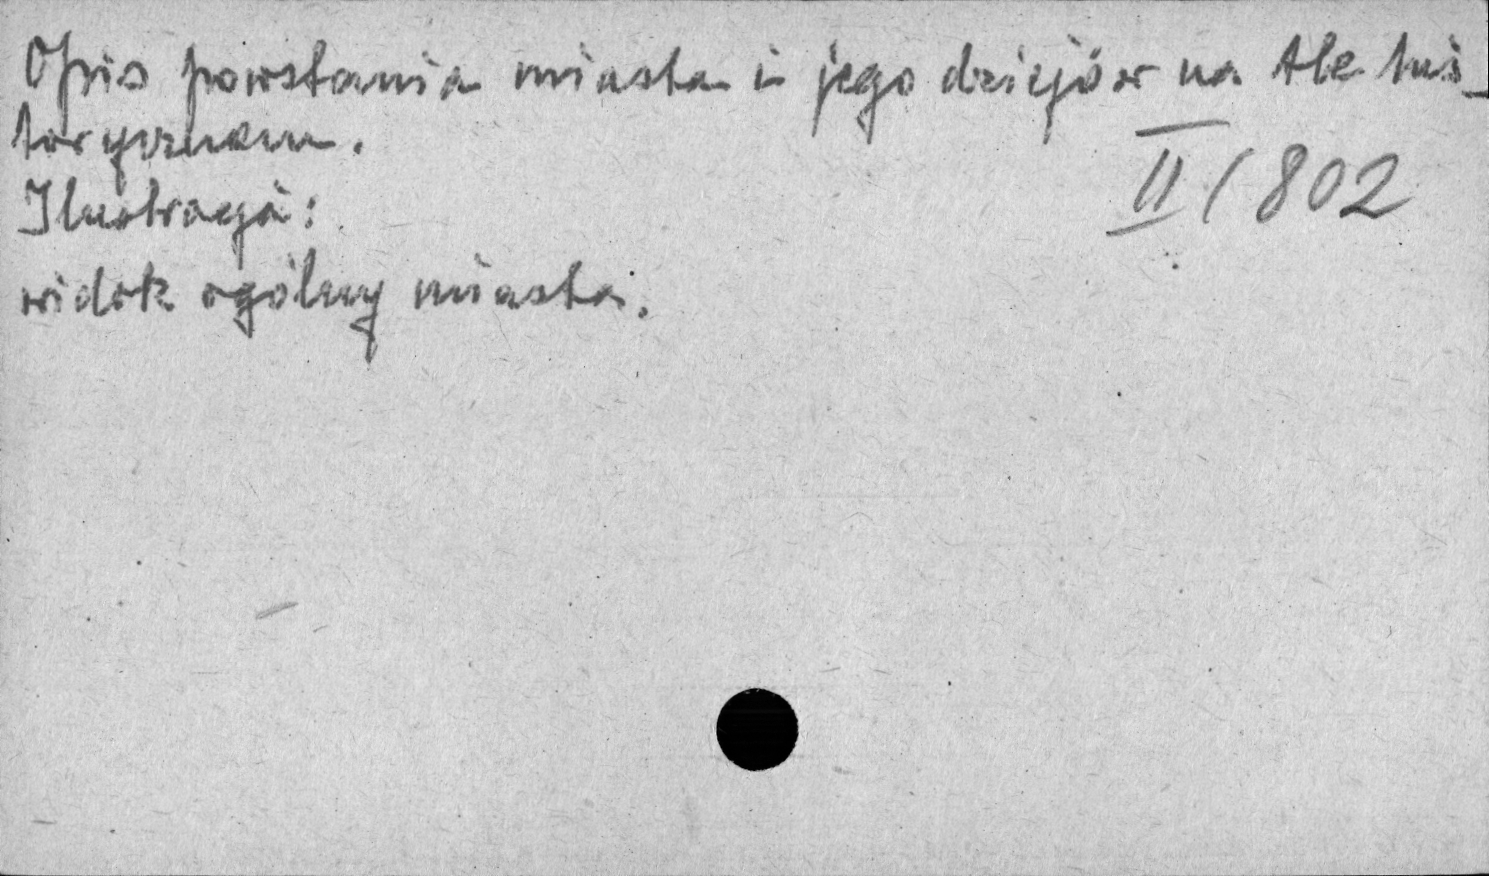 Opis powstania miasta i jego dziejów na tle his-
torycznem.
II/802
Ilustracja:
widok ogólny miasta.